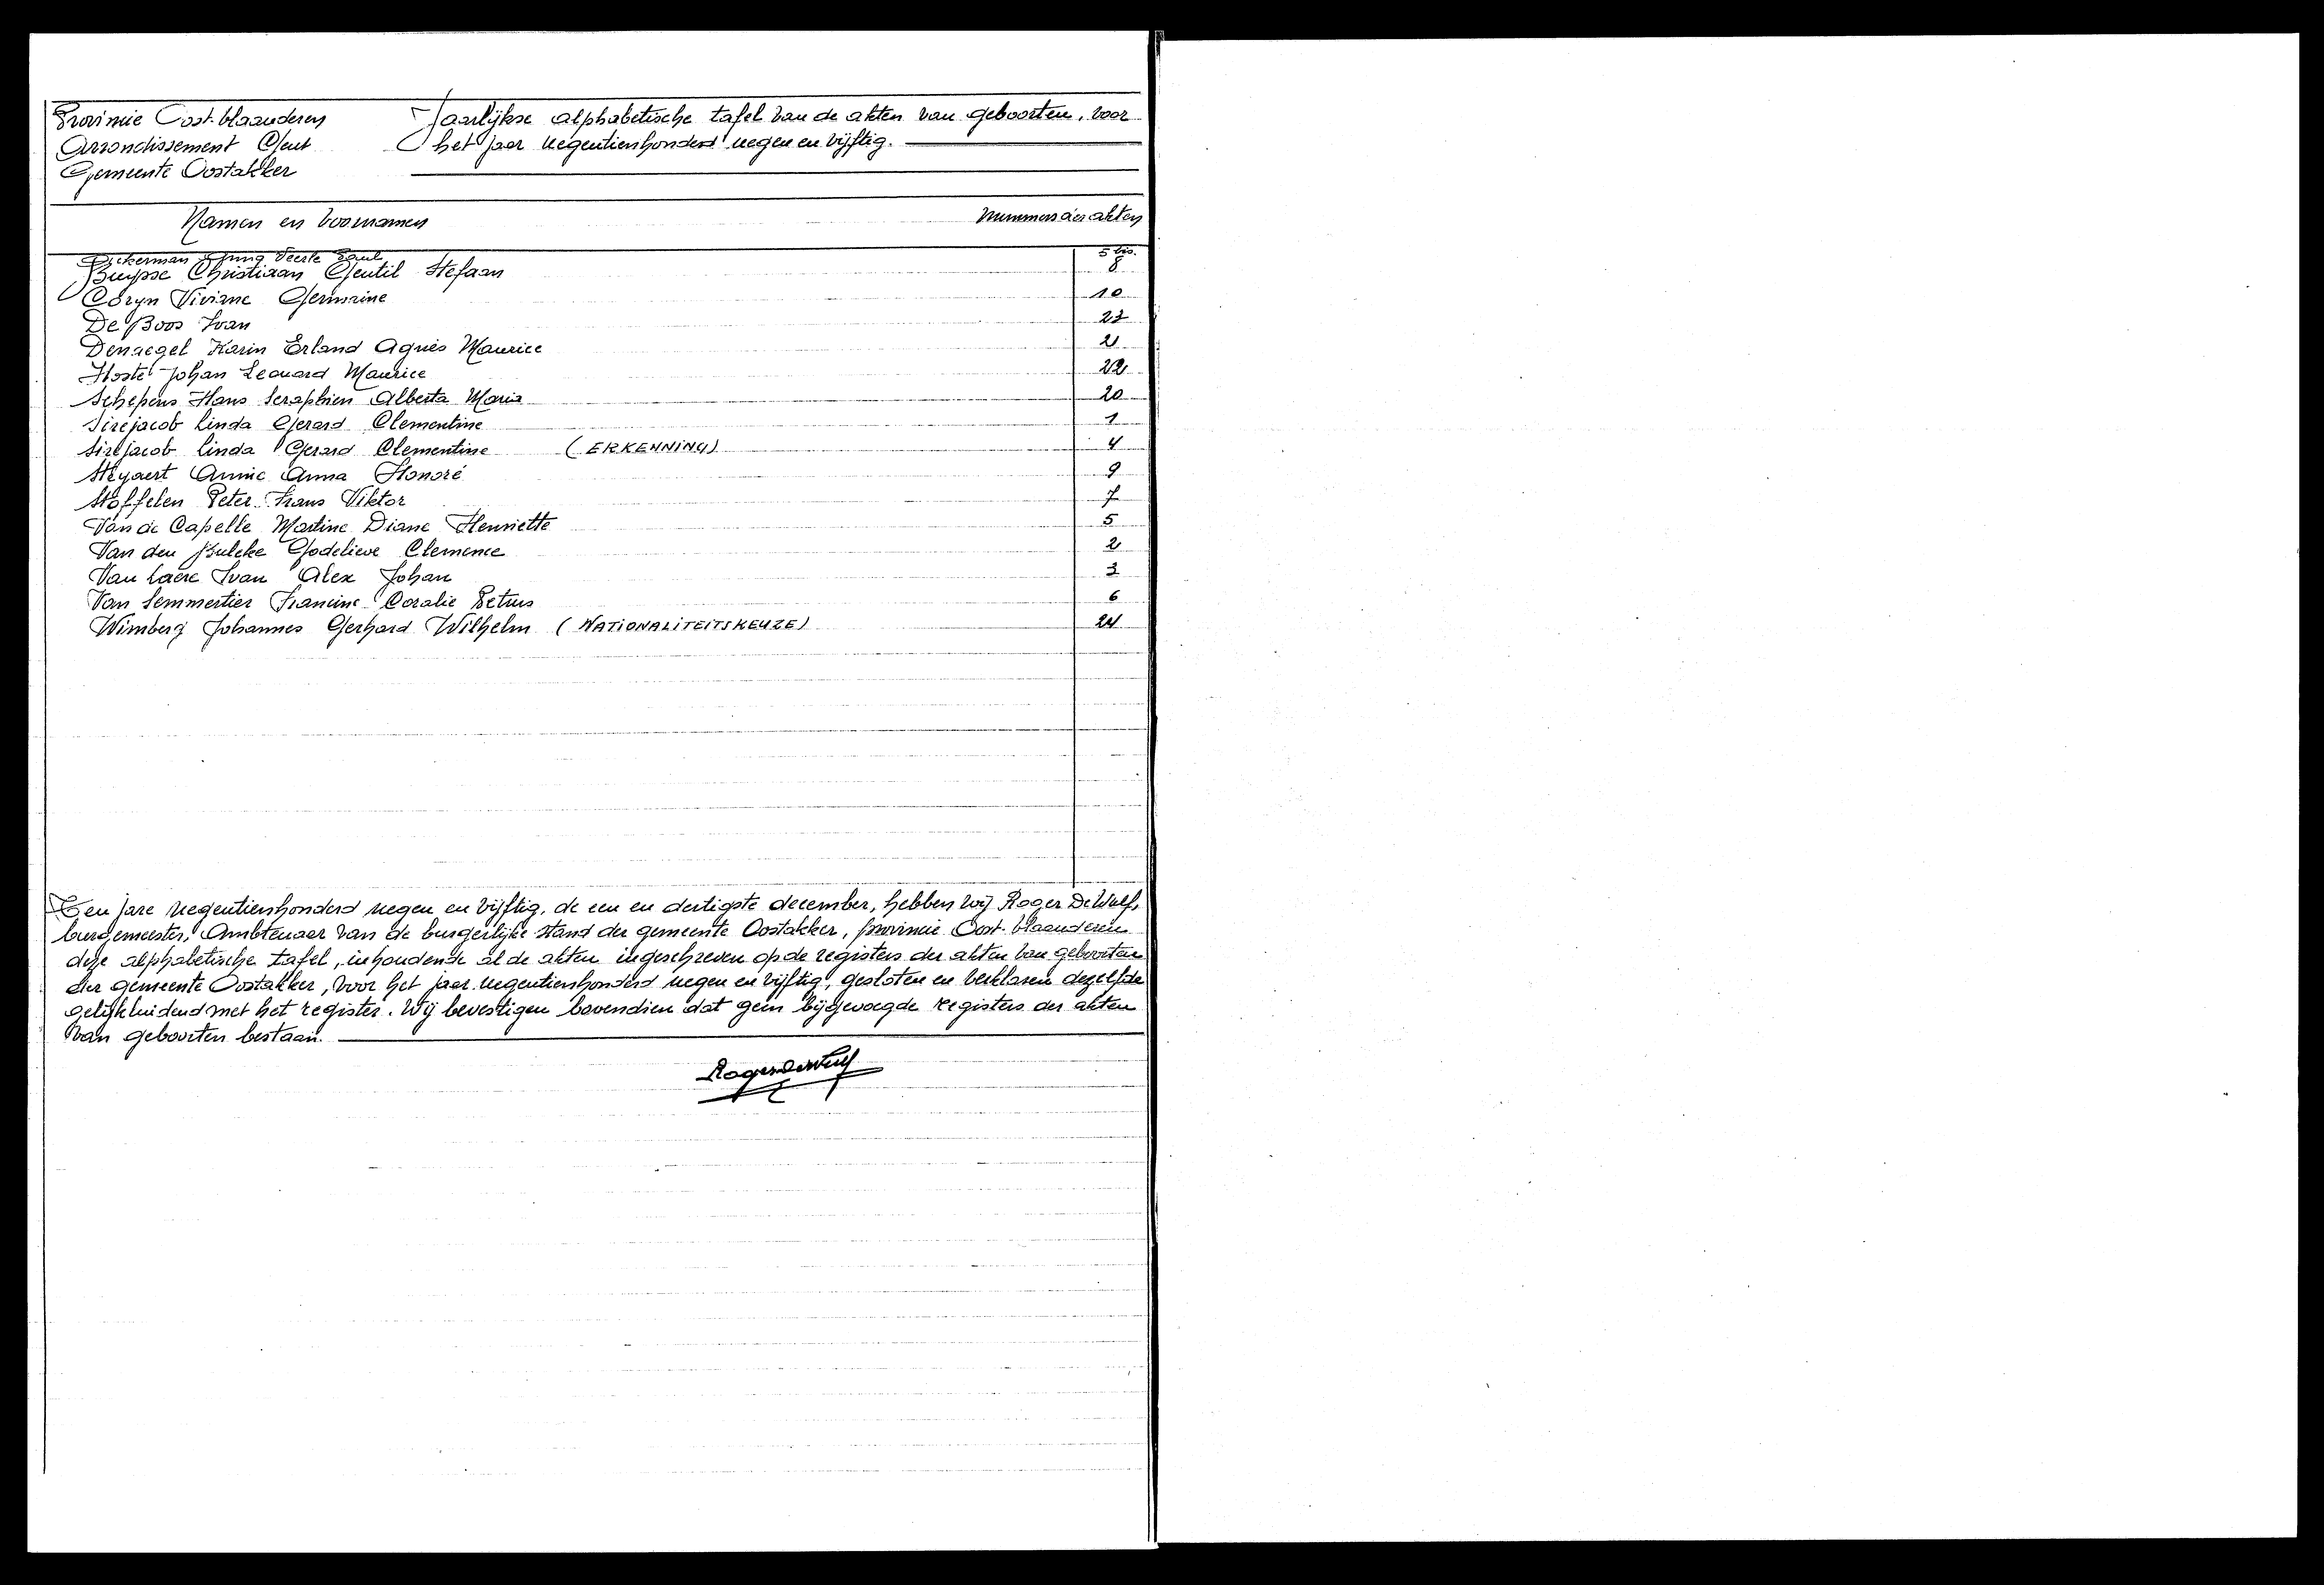 Provincie Oost-Vlaanderen
Arrondissement Gent
Gemeente Oostakker
Jaarlijkse alphabetische tafel van de akten van geboorten, voor
het jaar negentienhonderd negen en vijftig.
Namen en voornamen
Nummers der akten
Ackerman Paul 5 bis.
Buysse Christiaan Gentil Stefaan 8
Coryn Viviane Germaine 10
De Boos Ivan 23
Denaegel Karin Erland Agnès Maurice 21
Hoste Johan Leonard Maurice 22
Schepens Hans Seraphien Alberta Maria 20
Sirejacob Linda Gerard Clementine 1
Sirejacob Linda Gerard Clementine (ERKENNING) 4
Steyaert Annie Anna Honoré 9
Stoffelen Peter Frans Viktor 7
Van de Capelle Martine Diane Henriette 5
Van den Bulcke Godelieve Clemence 2
Van Laere Ivan Alex Johan 3
Van Semmertier Francine Coralie Petrus 6
Wimberg Johannes Gerhard Wilhelm (NATIONALITEITSKEUZE) 24
Ten jare negentienhonderd negen en vijftig, de een en dertigste december, hebben wij Roger De Wulf,
burgemeester, Ambtenaar van de burgerlijke stand der gemeente Oostakker, provincie Oost-Vlaanderen
deze alphabetische tafel, inhoudende al de akten ingeschreven op de registers der akten van geboorten
der gemeente Oostakker, voor het jaar negentienhonderd negen en vijftig, gesloten en verklaren dezelfde
gelijkluidend met het register. Wij bevestigen bovendien dat geen bijgevoegde registers der akten
van geboorten bestaan.
Roger De Wulf